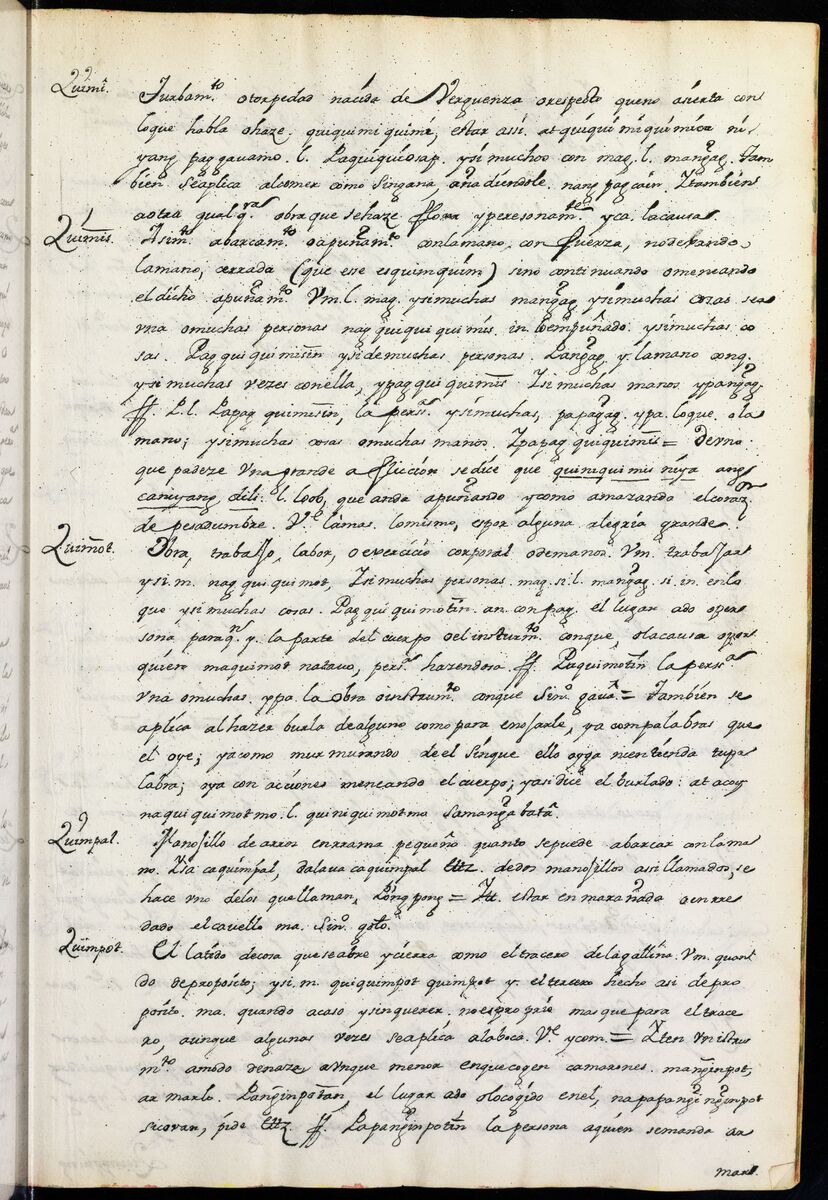 Quimi. Turbam.to otorpedad nacida de Verguenza orespecto queno asierta con
loque habla ohaze. quiquimiquimi, estar assi. at quiquimiquimica ni
yang pag gavamo. l. Paquiquiosap. ysimuchos con mag. l. mangag. Tam
bien seaplica alcomer como singana, añadiendole. nang pagcain. Ytambien
aotra qualq.ra obra que sehaze
Quimis. abarcam.to oapuñam.to conlamano, con fuerza, nodexando
lamano, cerrada (que ese esquimquim) sino continuando omeneando
eldicho apuñam.to Vm. l. mag. ysimuchas mangag ysimuchas cosas sea
vna omuchas personas nag quiqui quimis. in. loempuñado. ysimuchas co
sas. Pag qui quimisin ysidemuchas personas. Pangag. y. lamano conq.
ysimuchas vezes conella, ypag qui quimis. Isimuchas manos ypangag.
ff. P. l. Papag quimisin, la pers.a ysimuchas, papagag. ypa. loque. ola
mano; ysimuchas cosas omuchas manos. Ypapag quiquimis = Devno
que padeze vna grande afliccion sedice que quiniquimis niya ang
caniyang dili. l. loob, que anda apuñando ycomo amazando elcoraz.on
de pesadumbre. V.e lamas. lomismo, espor alguna alegria grande.
Quimot. Obra, trabajo, labor, oexercicio corporal odemanos. Vm. trabajar
ysi. m. nag qui qui mot, Isimuchas personas. mag. si. l. mangag. si. in. enlo
que ysimuchas cosas. Pag qui quimotin. an. con pag. el lugar ado oper
sona paraq.n y. la parte del cuerpo oel instrum.to conque, olacausa
quiere maquimot natauo, pers.a hazendosa ff. Paquimotin la pers.a
vna omuchas. ypa. la obra oinstrum.to conque Sin.o gauà. = Tambien se
aplica alhazer burla dealguno como para enojarle, ya conpalabras que
el oye; yacomo murmurando deel sinque ello oyga nientienda tupa
labra; oya con acciones meneando elcuerpo; yasi dice el burlado: at acoy
naquiquimotmo. l. quiniquimotmo samanga batà.
Quimpal. Manojillo de arroz enrrama pequeño quanto sepuede abarcar conlama
no. Isa caquimpal, dalaua caquimpal ettz. dedos manojillos asillamados, se
hace vno delos quellaman, Pongpong = Itt. estar enmarañada oenrre
dado elcavello ma. Sin.o goto.
Quimpot. El latido decosa queseabre ycierra como eltracero delagallina. Vm. quan
do deproposito; ysi. m. quiquimpot quimpot y. el tercero hecho asi depro
posito. ma. quando acaso ysinquerer, noespropio masque para el trace
ro, aunque algunas vezes seaplica alaboca. V.e ycom. = Yten vnistru
m.to amodo denaze aunque menor enquecogen camarones. mangimpot,
armarlo. Pangimpotan, el lugar ado olocogido enel, napapangingimpot
sicovan, pide ettz. ff. Papangimpotin la persona aquien semanda ar
marl.